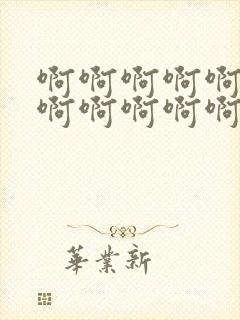 啊啊啊啊啊
啊啊啊啊啊
華業新